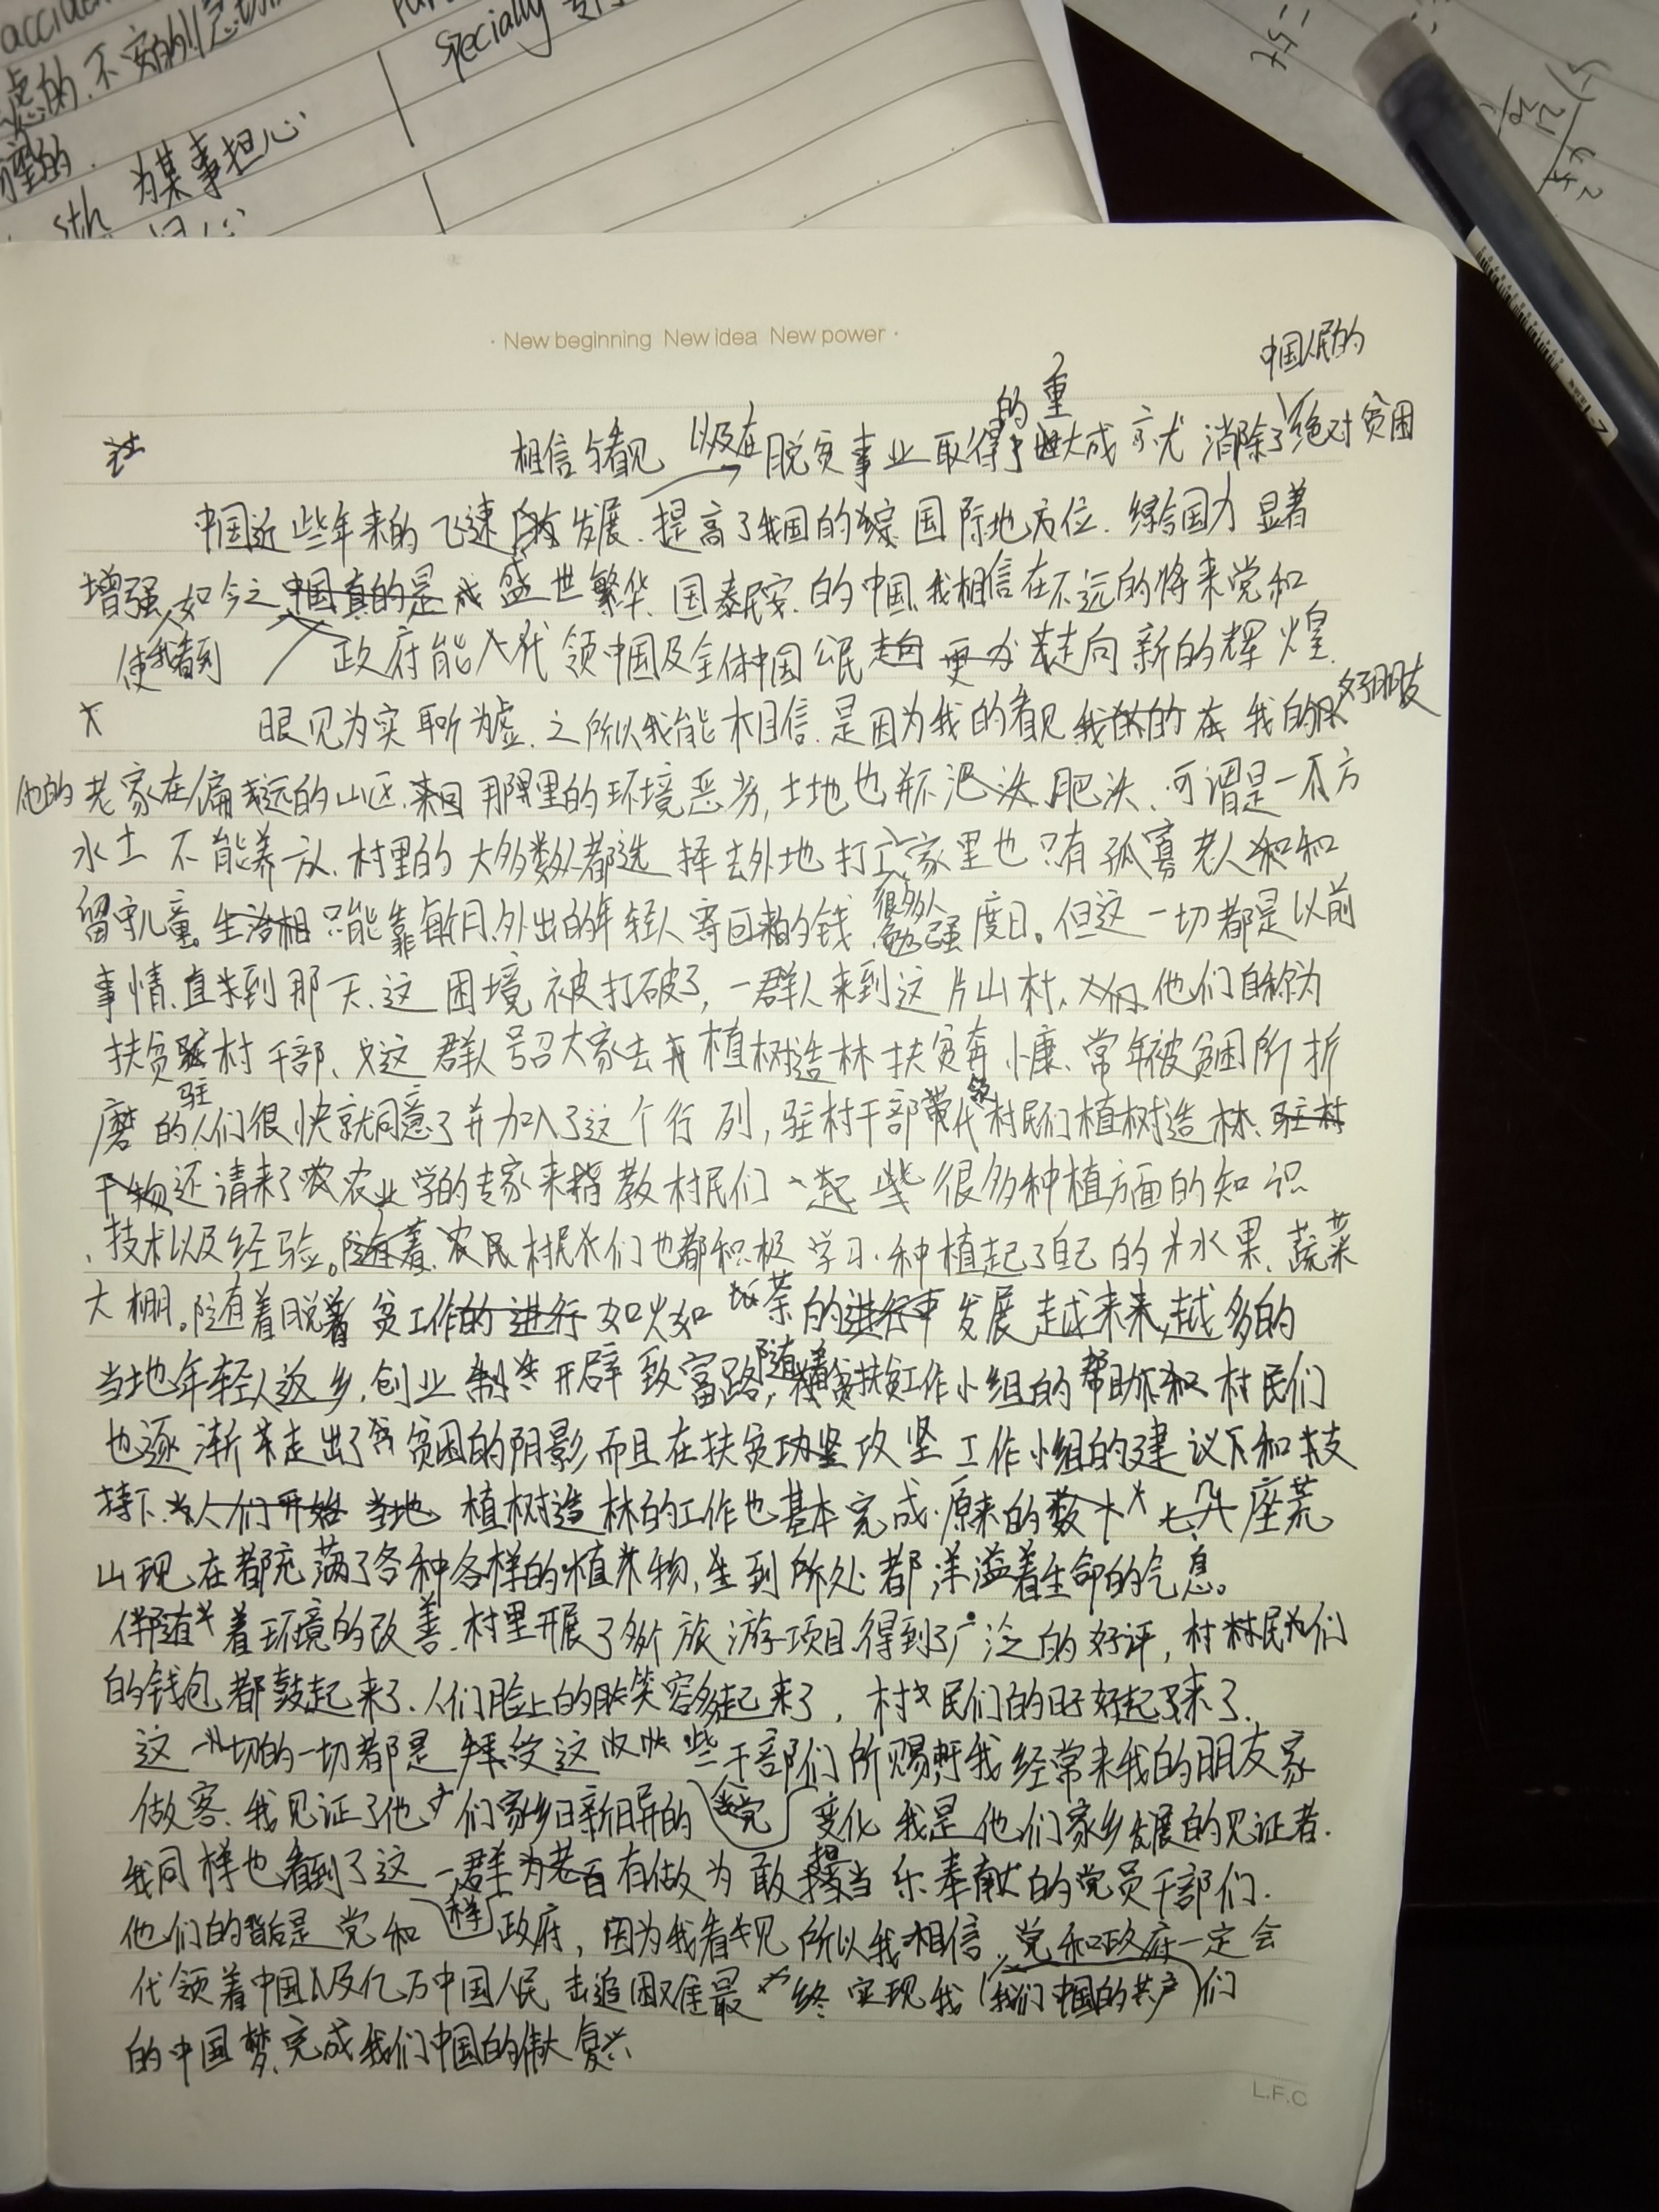 specially
为某事担心
sth
· New beginning New idea New power ·
中国人民的
的重
相信与看见 以及在脱贫事业取得了大成就 消除了绝对贫困
中国近些年来的飞速发展、提高了我国的国际地位、综合国力显著
增强、如今之中国真的是盛世繁华、国泰民安、的中国、我相信在不远的将来党和
使我看到 政府能代领中国及全体中国公民走向新的辉煌
眼见为实耳听为虚、之所以我能相信、是因为我的看见 在我的好朋友
他的老家在偏远的山区、那里的环境恶劣,土地也并不肥沃、可谓是一方
水土不能养方、村里的大多数人都选择去外地打工、家里也只有孤寡老人和
留守儿童。只能靠每月外出的年轻人寄回来的钱 很多人勉强度日。但这一切都是以前
事情、直到那一天、这困境被打破了,一群人来到这片山村、他们自称为
扶贫驻村干部、这群人号召大家去植树造林扶贫奔小康、常年被贫困所折
驻
磨的人们很快就同意了并加入了这个行列,驻村干部带领村民们植树造林、驻村
干物还请来了农业学的专家来教村民们一起些很多种植方面的知识
、技术以及经验。随着、农民村民们也都积极学习、种植起了自己的水果、蔬菜
大棚。随着脱贫工作的进行如火如荼的发展越来越多的
当地年轻人返乡,创业开辟致富路,随着扶贫工作小组的帮助和村民们
也逐渐走出了贫困的阴影而且在扶贫攻坚工作小组的建议下和支
持下、当人们开始当地植树造林的工作也基本完成、原来的数十几座荒
山现在都充满了各种各样的植物,到所处都洋溢着生命的气息。
伴随着环境的改善、村里开展了多个旅游项目、得到了广泛的好评,村民们
的钱包都鼓起来了、人们脸上的笑容多起来了,村民们的日子好起来了、
这一切的一切都是拜这些干部们所赐、我经常来我的朋友家
做客、我见证了他们家乡日新月异的变化 我是他们家乡发展的见证者.
我同样也看到了这一群为老百有做为敢担当乐奉献的党员干部们.
他们的背后是党和政府,因为我看见所以我相信、党和政府一定会
代领着中国以及亿万中国人民去追困难最终实现我(我们中国的共产)们
的中国梦、完成我们中国的伟大复兴
L.F.C